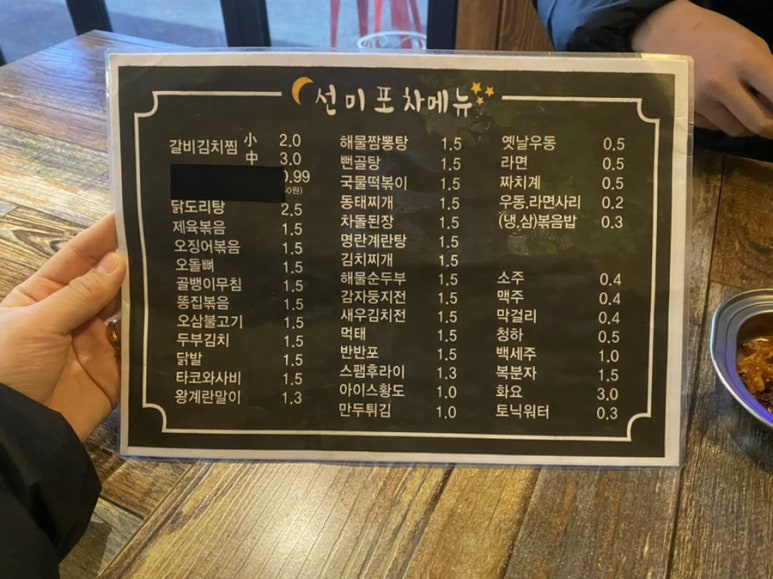 선미포차메뉴
갈비김치찜 小 2.0
中 3.0
0.99
닭도리탕 2.5
제육볶음 1.5
오징어볶음 1.5
오돌뼈 1.5
골뱅이무침 1.5
똥집볶음 1.5
오삼불고기 1.5
두부김치 1.5
닭발 1.5
타코와사비 1.5
왕계란말이 1.3
해물짬뽕탕 1.5
뻔골탕 1.5
국물떡볶이 1.5
동태찌개 1.5
차돌된장 1.5
명란계란탕 1.5
김치찌개 1.5
해물순두부 1.5
감자둥지전 1.5
새우김치전 1.5
먹태 1.5
반반포 1.5
스팸후라이 1.3
아이스황도 1.0
만두튀김 1.0
옛날우동 0.5
라면 0.5
짜치계 0.5
우동,라면사리 0.2
(냉,삼)볶음밥 0.3
소주 0.4
맥주 0.4
막걸리 0.4
청하 0.5
백세주 1.0
복분자 1.5
화요 3.0
토닉워터 0.3